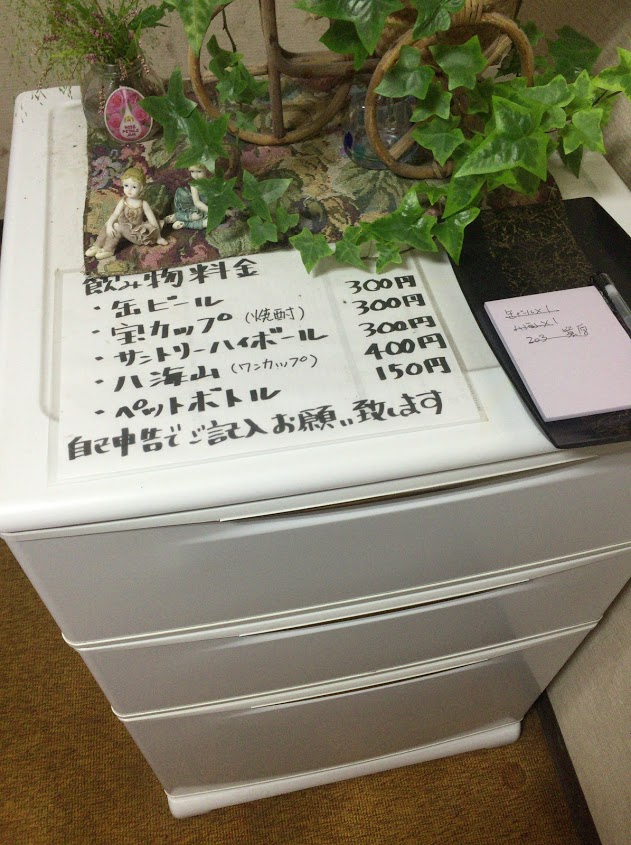 飲み物料金
・缶ビール 300円
・宝カップ(焼酎) 300円
・サントリーハイボール 300円
・八海山(ワンカップ) 400円
・ペットボトル 150円
自己申告でご記入お願い致します
缶ビール×1
八海山×1
203